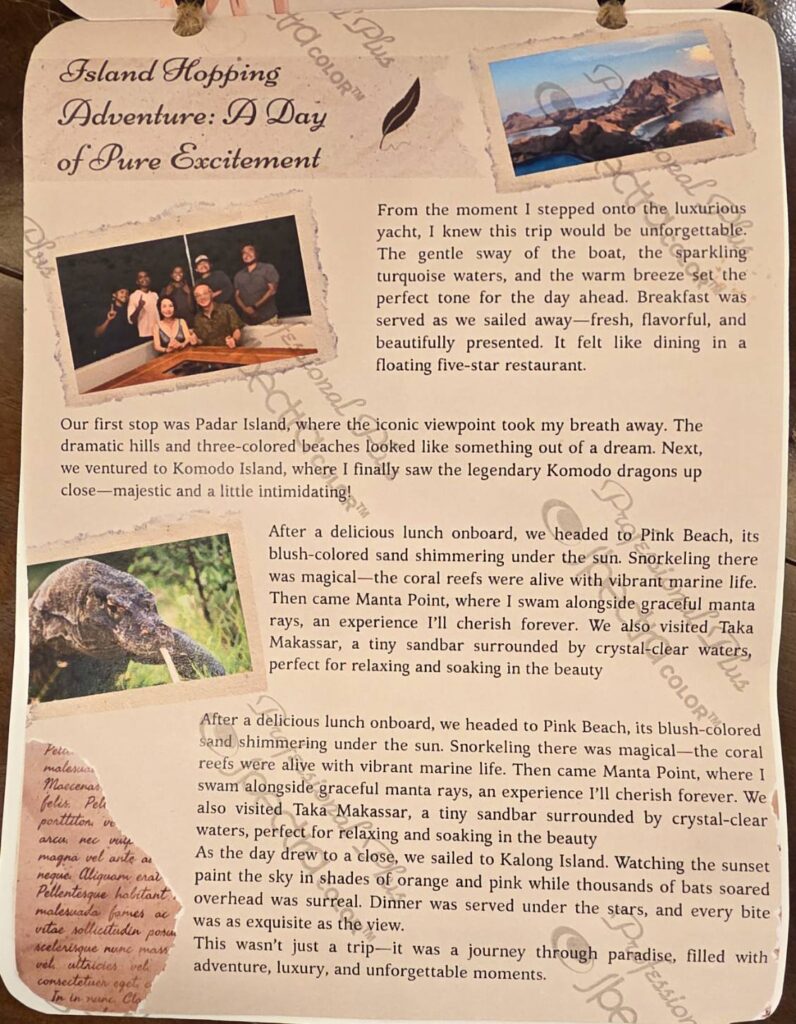 Island Hopping
Adventure: A Day
of Pure Excitement
From the moment I stepped onto the luxurious
yacht, I knew this trip would be unforgettable.
The gentle sway of the boat, the sparkling
turquoise waters, and the warm breeze set the
perfect tone for the day ahead. Breakfast was
served as we sailed away—fresh, flavorful, and
beautifully presented. It felt like dining in a
floating five-star restaurant.
Our first stop was Padar Island, where the iconic viewpoint took my breath away. The
dramatic hills and three-colored beaches looked like something out of a dream. Next,
we ventured to Komodo Island, where I finally saw the legendary Komodo dragons up
close—majestic and a little intimidating!
After a delicious lunch onboard, we headed to Pink Beach, its
blush-colored sand shimmering under the sun. Snorkeling there
was magical—the coral reefs were alive with vibrant marine life.
Then came Manta Point, where I swam alongside graceful manta
rays, an experience I'll cherish forever. We also visited Taka
Makassar, a tiny sandbar surrounded by crystal-clear waters,
perfect for relaxing and soaking in the beauty
After a delicious lunch onboard, we headed to Pink Beach, its blush-colored
sand shimmering under the sun. Snorkeling there was magical—the coral
reefs were alive with vibrant marine life. Then came Manta Point, where I
swam alongside graceful manta rays, an experience I'll cherish forever. We
also visited Taka Makassar, a tiny sandbar surrounded by crystal-clear
waters, perfect for relaxing and soaking in the beauty
As the day drew to a close, we sailed to Kalong Island. Watching the sunset
paint the sky in shades of orange and pink while thousands of bats soared
overhead was surreal. Dinner was served under the stars, and every bite
was as exquisite as the view.
This wasn't just a trip—it was a journey through paradise, filled with
adventure, luxury, and unforgettable moments.
Maecenas
felis.
porttitor,
arcu, nec
magna vel ante
neque. Aliquam erat
Pellentesque habitant
malesuada fames ac
vitae sollicitudin
scelerisque nunc
vel, ultricies vel,
consectetuer eget,
In in nunc.
Professional Plus
Spectra COLOR™
Professional Plus
Spectra COLOR™
Professional Plus
Spectra COLOR™
Professional Plus
Spectra COLOR™
Professional Plus
Spectra COLOR™
Plus
Professional